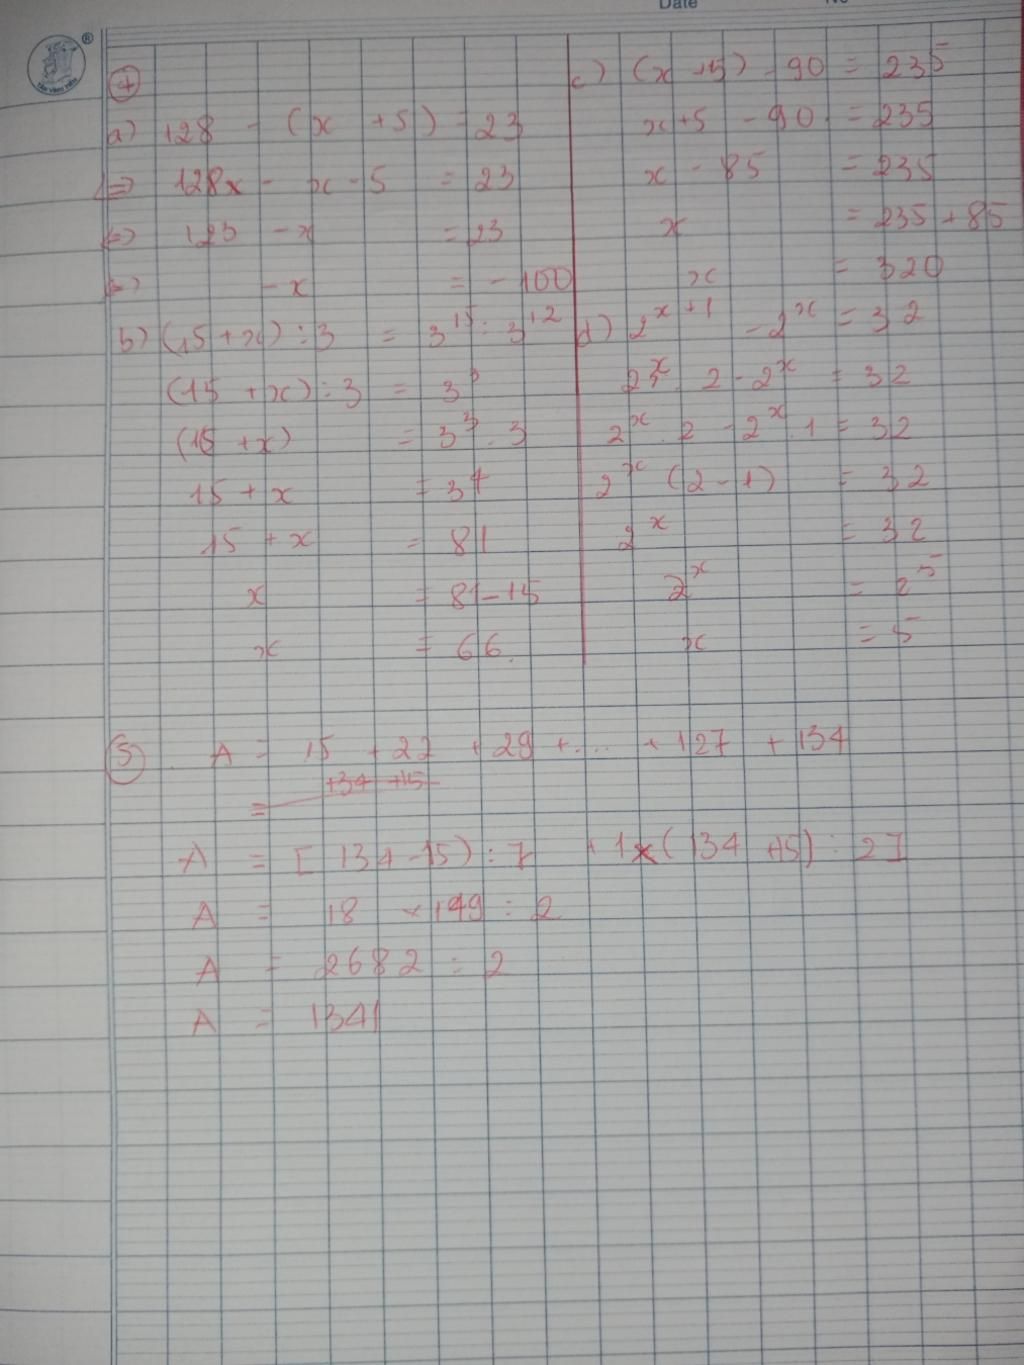 Date No
④
a) 128 - (x + 5) = 23
<=> 128x - x - 5 = 23
<=> 123 - x = 23
<=> - x = - 100
b) (15 + x) : 3 = 3^15 : 3^12
(15 + x) : 3 = 3^3
(15 + x) = 3^3 . 3
15 + x = 3^4
15 + x = 81
x = 81 - 15
x = 66
c) (x + 5) - 90 = 235
x + 5 - 90 = 235
x - 85 = 235
x = 235 + 85
x = 320
d) 2^x + 1 - 2^x = 32
2^x . 2 - 2^x = 32
2^x . 2 - 2^x . 1 = 32
2^x (2 - 1) = 32
2^x = 32
2^x = 2^5
x = 5
⑤ A = 15 + 22 + 29 + .... + 127 + 134
= +34 +15
A = [ 134 - 15) : 7 + 1x (134 + 15) : 2]
A = 18 x 149 : 2
A = 2682 : 2
A = 1341